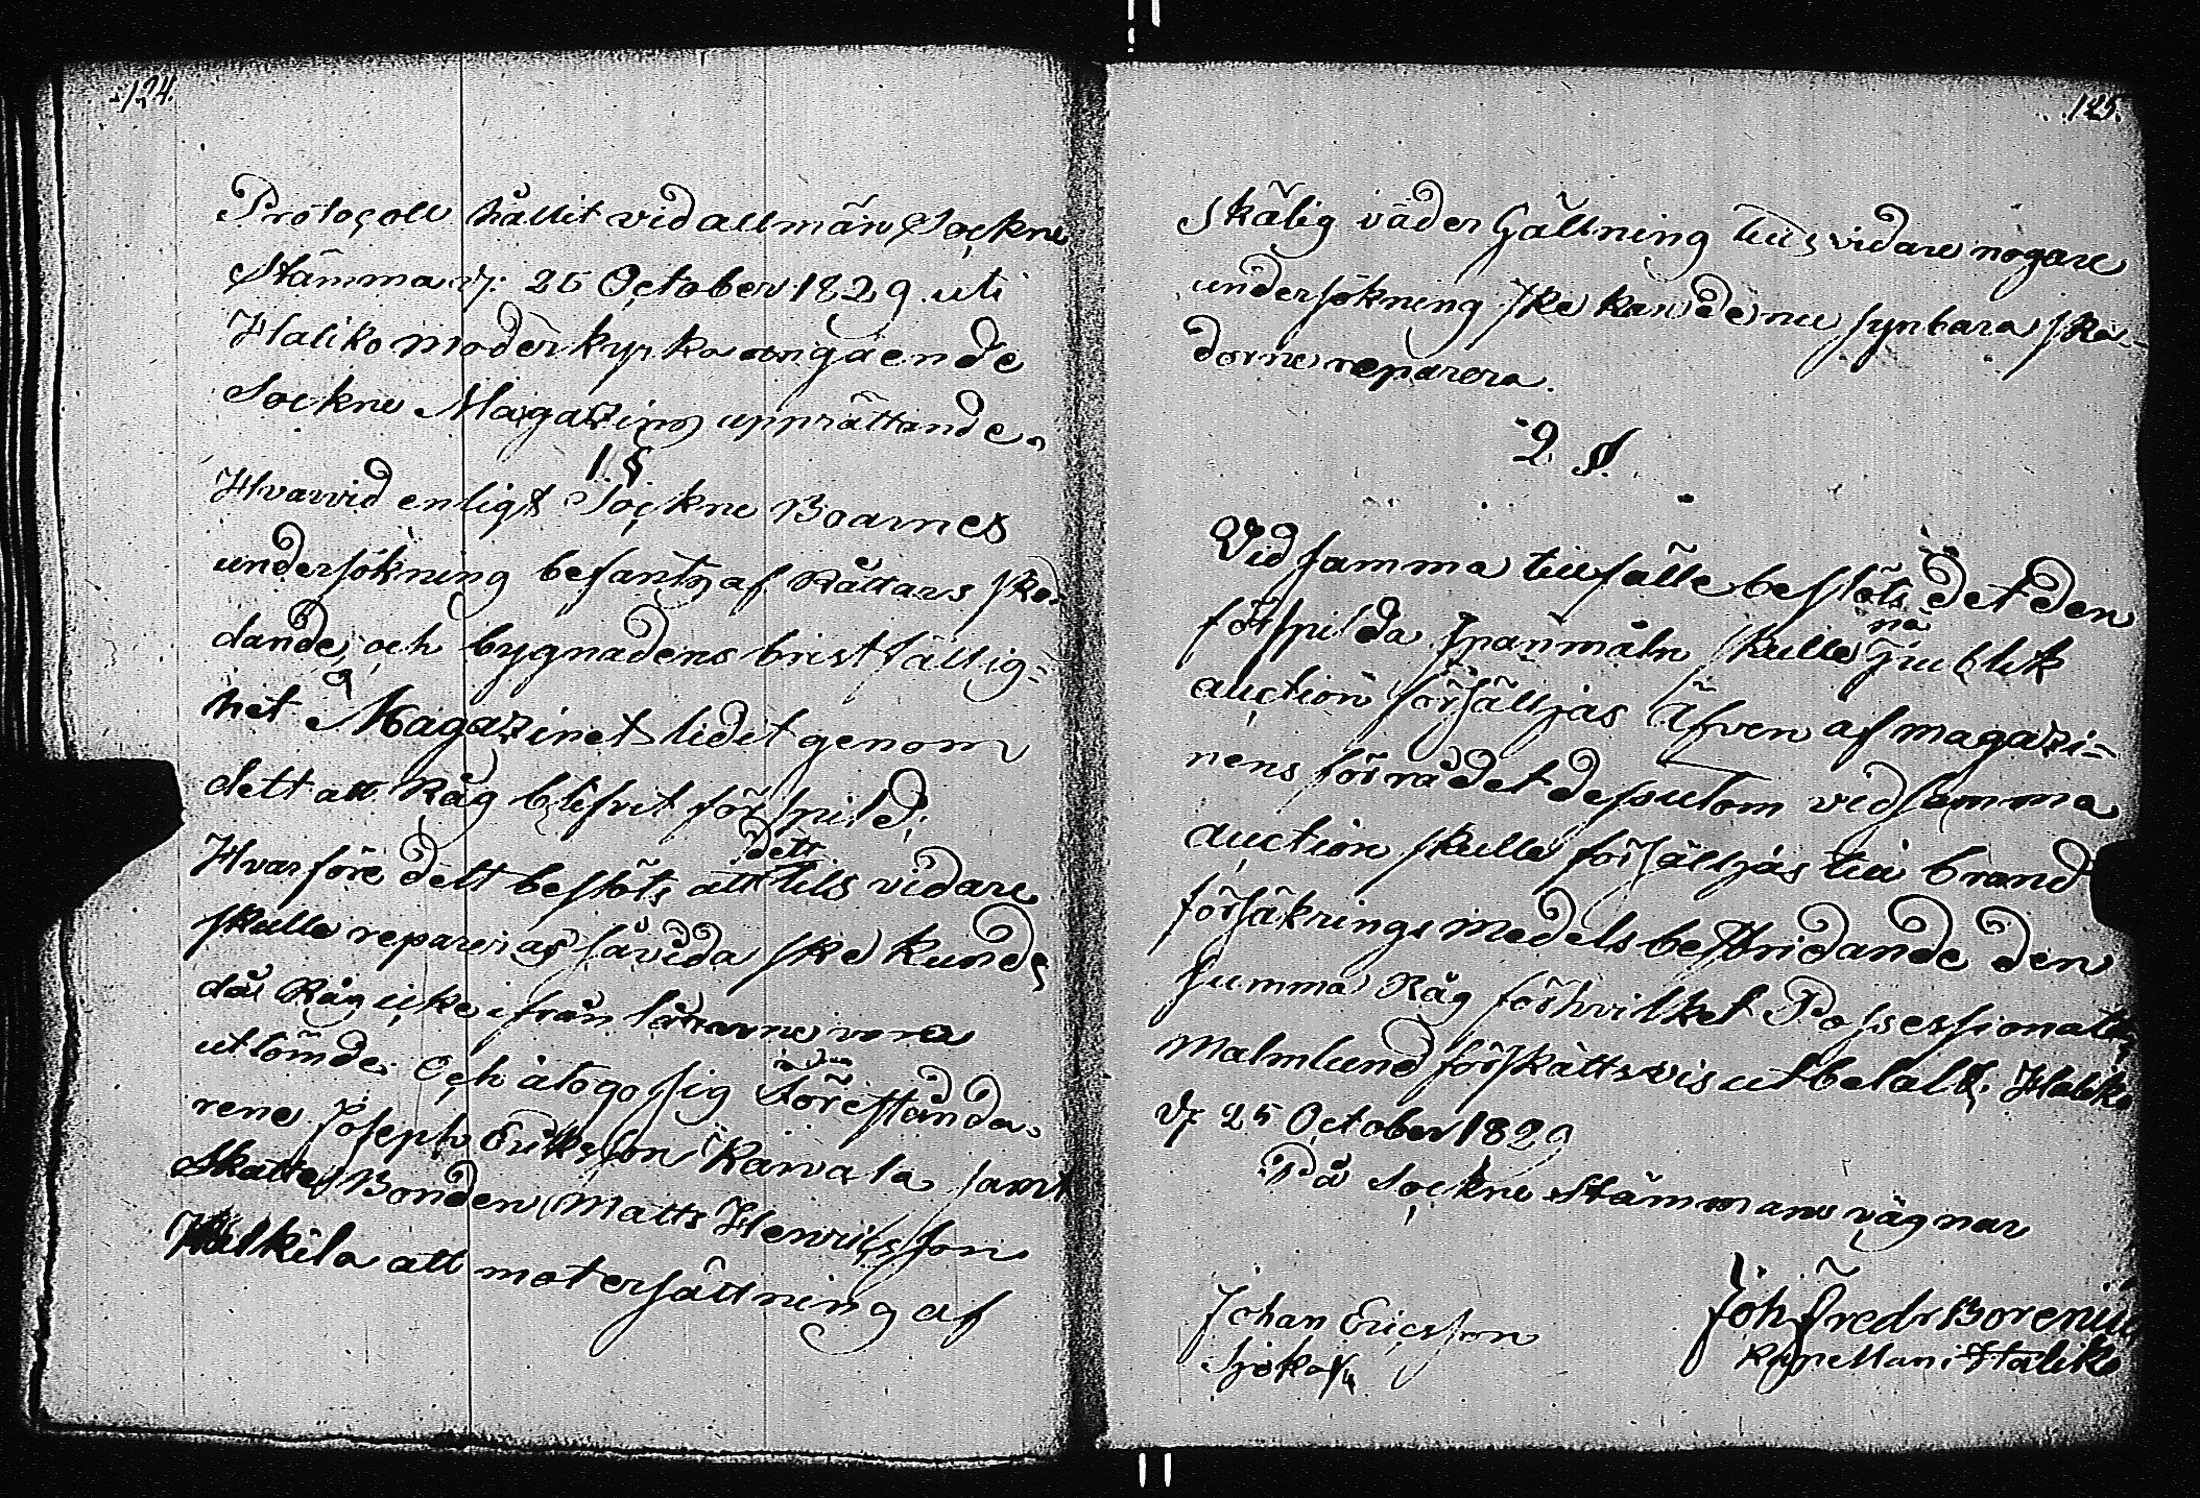 124.
Protocoll hållit vid allmän Sockne
Stämma d. 25 October 1829 uti
Haliko moderkyrka angående
Sockne Magazins upprättande,
1. §
Hvarvid enligt Sockne Boarnes
undersökning befants af Råttars ska-
dande, och bygnadens bristfällig-
het Magazinet lidit genom
dett att Råg blifvit förspild;
Hvarföre dett beslöts att dett tils vidare
skulle repareras såvida ske kunde
då Råg icke ifrån lårarne vore
utlömde. Och åtogo sig Föreståndа-
rene Joseph Eriksson Karvala samt
Skatte Bonden Matts Henricsson
Halkila att mot ersättning af
125.
skälig vädergällning tils vidare nogare
undersökning ske kan de nu synbara ska-
dorne reparera.
2. §.
Vid samma tillfälle beslöts det den
förspilda spanmåln skulle på publik
auction försälljas Äfven af magazi-
nens förrådet dessutom vid samma
auction skulle försälljas till brand
försäkrings medels bestridande den
summa Råg för hvilket Possessionaten
Malmlund förskåttsvis utbetalt. Haliko
d. 25 October 1829
På Sockne Stämmans vägnar
Johan Ericsson
Joh Fredr Borenius
Kapellan i Haliko